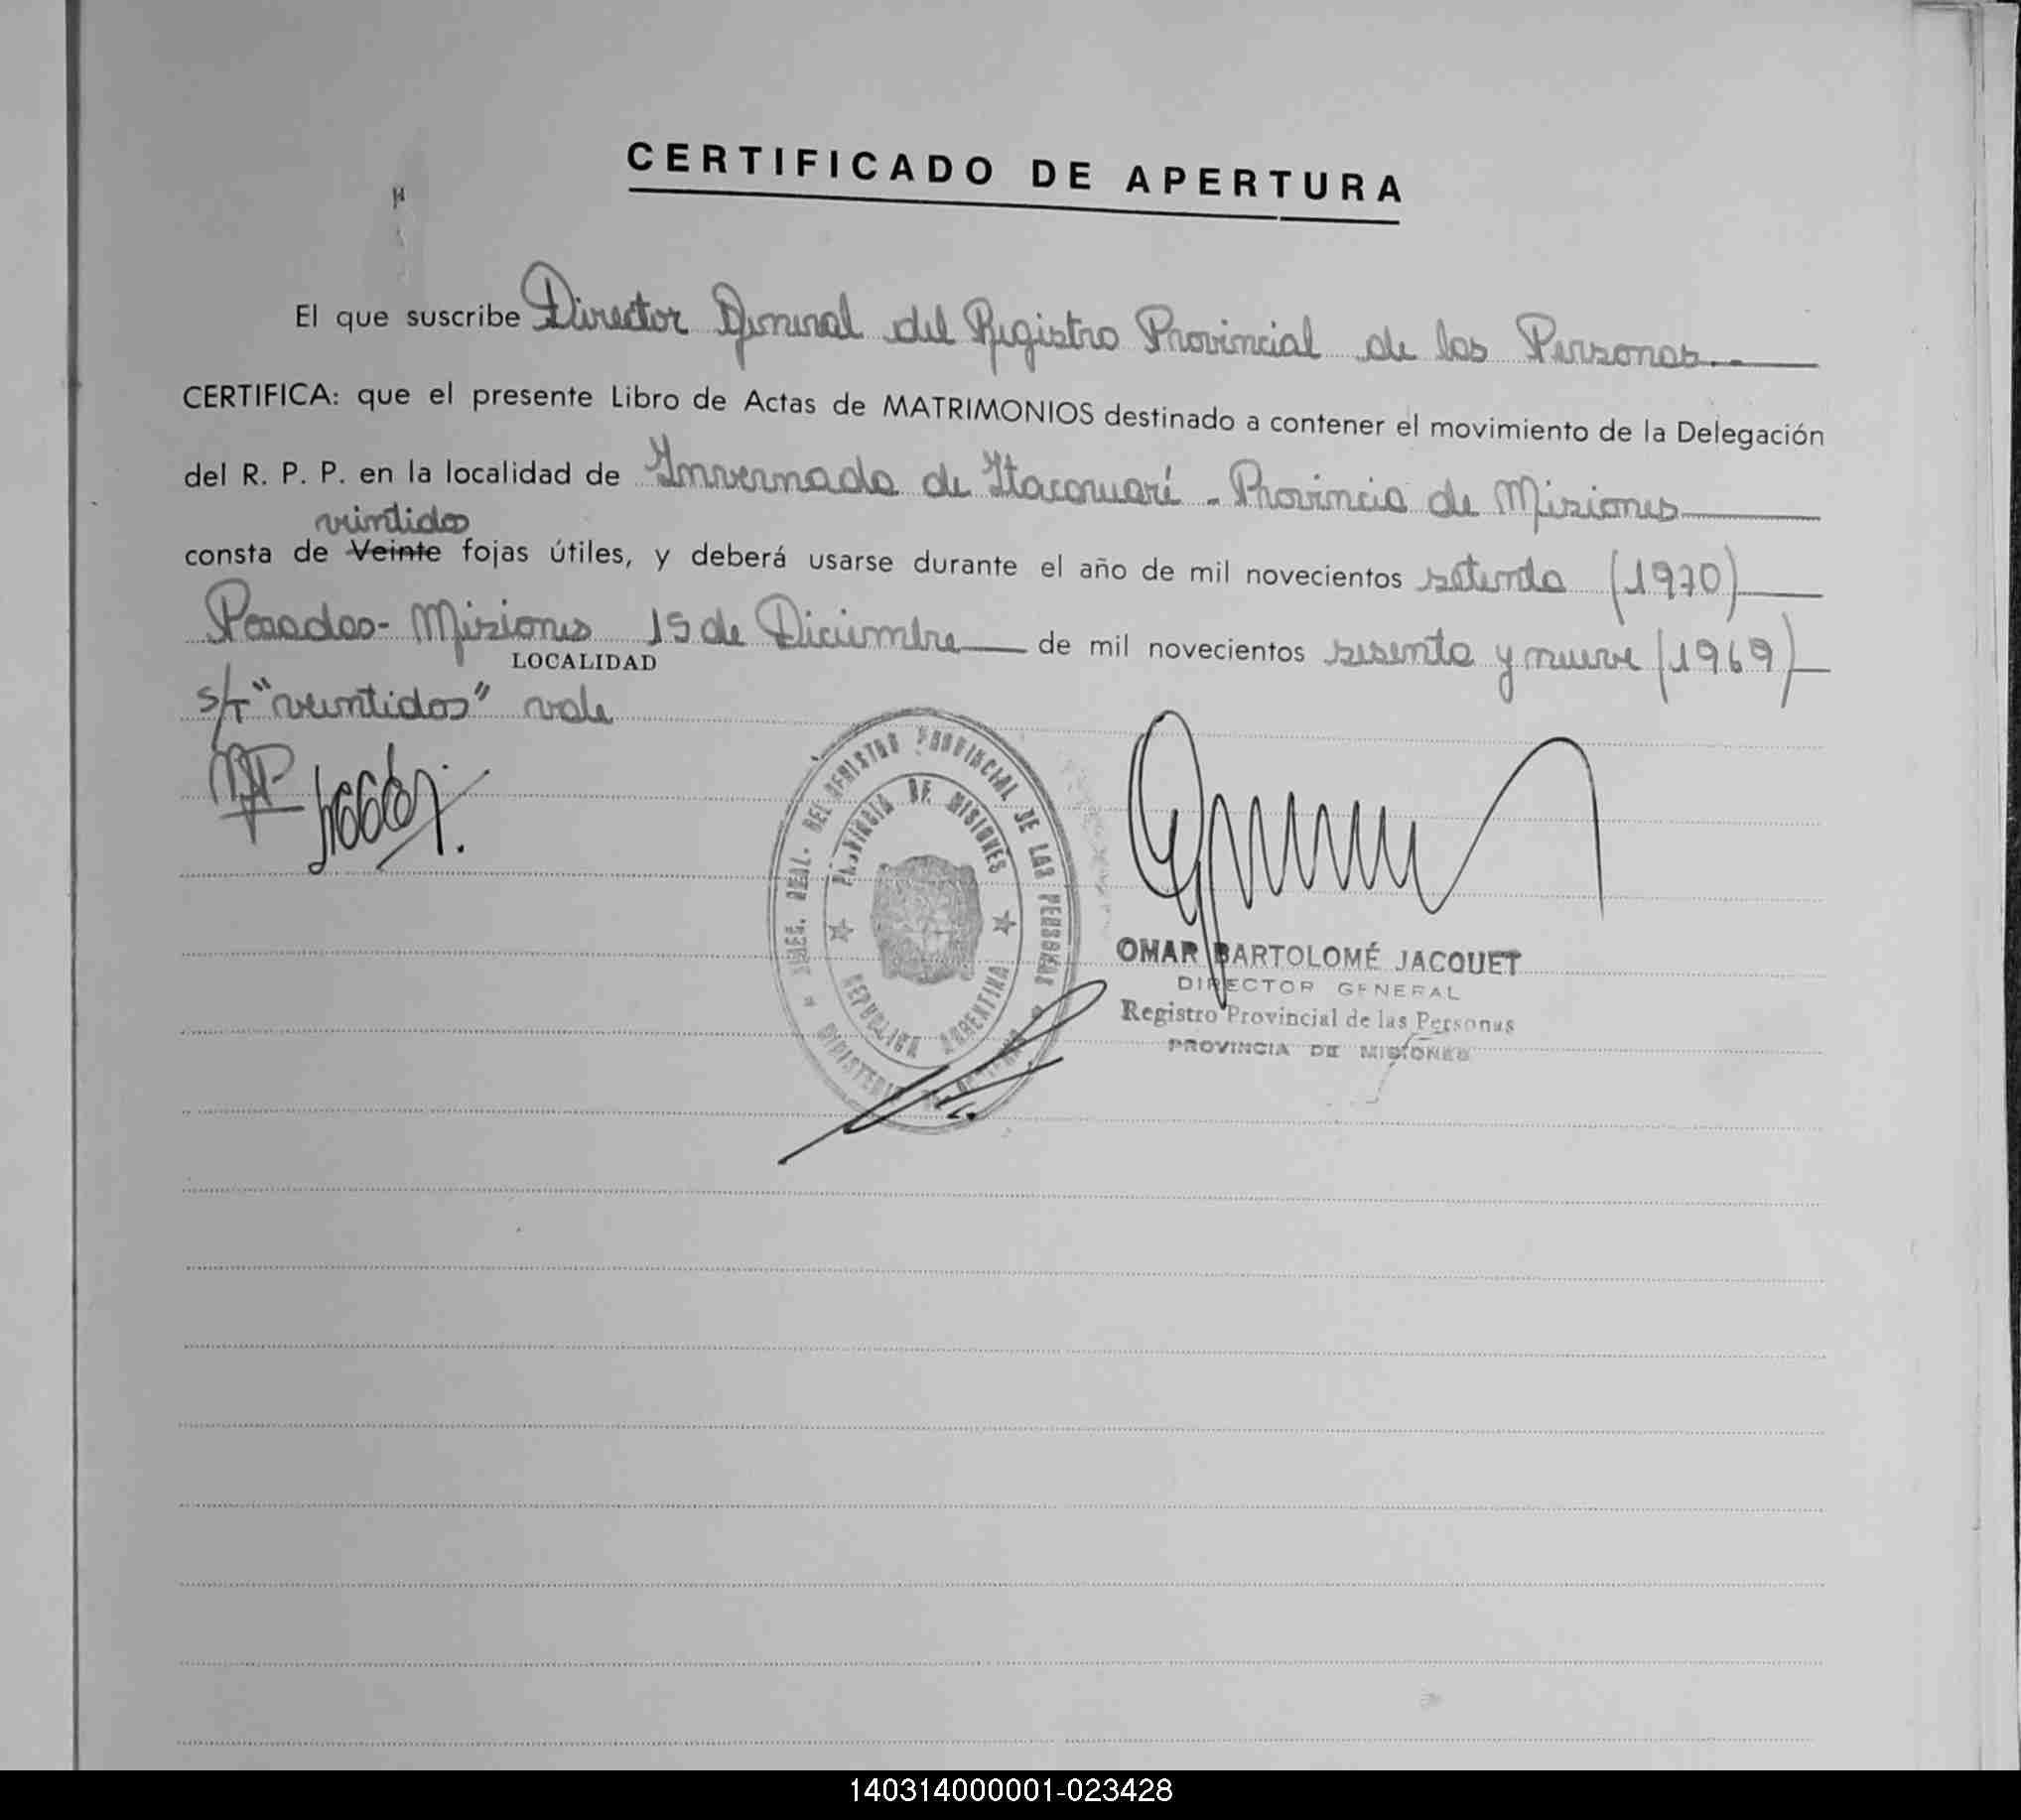 CERTIFICADO DE APERTURA
El que suscribe Director General del Registro Provincial de las Personas.-
CERTIFICA: que el presente Libro de Actas de MATRIMONIOS destinado a contener el movimiento de la Delegación
del R. P. P. en la localidad de Invernada de Itacaruaré - Provincia de Misiones
veintidos
consta de Veinte fojas útiles, y deberá usarse durante el año de mil novecientos setenta (1970)
Posadas- Misiones 15 de Diciembre de mil novecientos sesenta y nueve (1969)
LOCALIDAD
s/T "veintidos" vale
DIREC. GRAL. DEL REGISTRO PROVINCIAL DE LAS PERSONAS
PROVINCIA DE MISIONES
REPUBLICA ARGENTINA
MINISTERIO DE GOBIERNO
OMAR BARTOLOMÉ JACQUET
DIRECTOR GENERAL
Registro Provincial de las Personas
PROVINCIA DE MISIONES
140314000001-023428